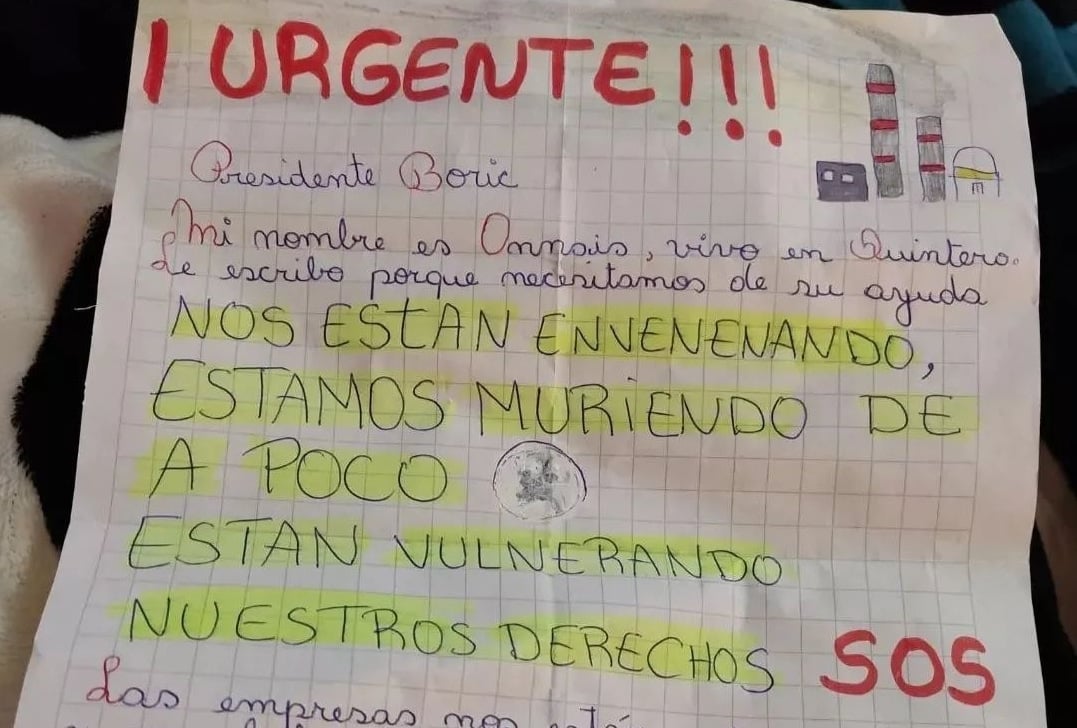 ¡URGENTE!!!
Presidente Boric
Mi nombre es Onnais, vivo en Quintero.
Le escribo porque necesitamos de su ayuda
NOS EStAN ENVENENANDO,
ESTAMOS MURiENDO DE
A POCO
ESTAN VULNERANDO
NUESTROS DERECHOS SOS
Las empresas nos